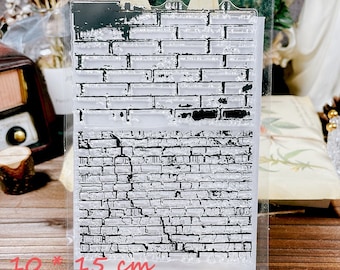 10 * 15 cm